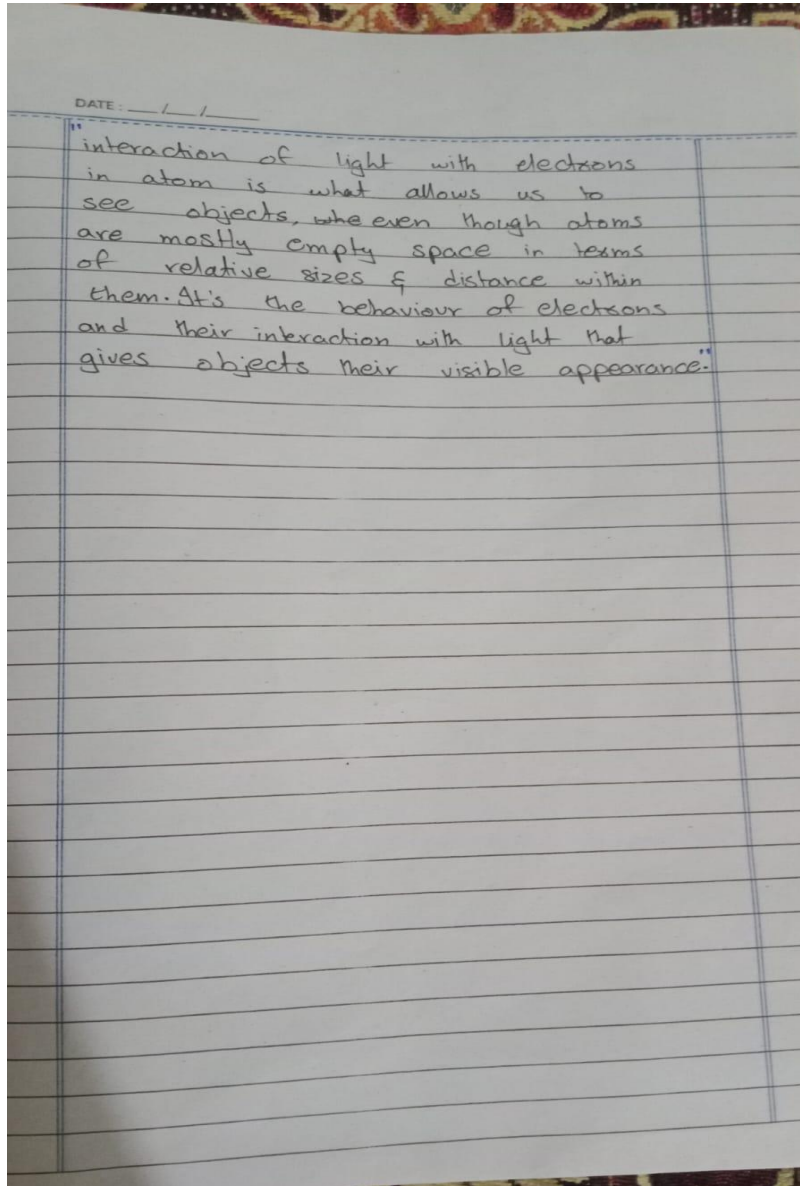 DATE: __/__/____
"interaction of light with electrons
in atom is what allows us to
see objects, even though atoms
are mostly empty space in terms
of relative sizes & distance within
them. It's the behaviour of electrons
and their interaction with light that
gives objects their visible appearance."